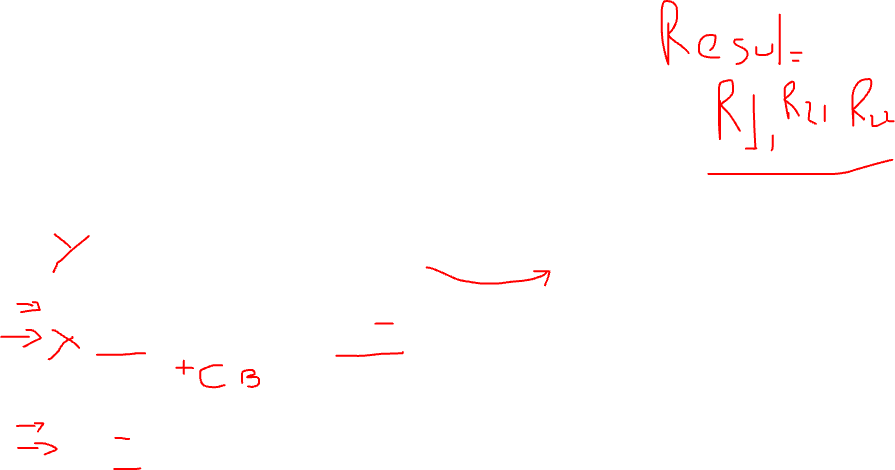 Resul=
R1, R21 R22
Y
X
+CB